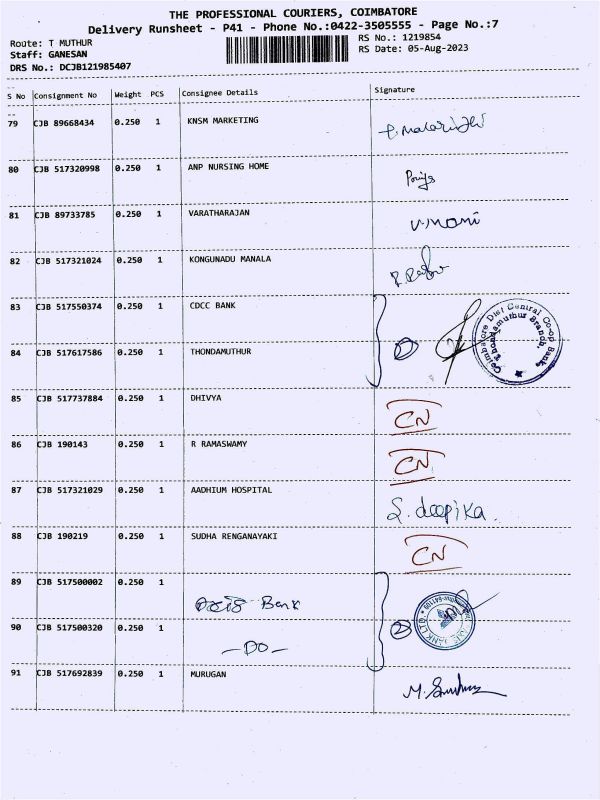 THE PROFESSIONAL COURIERS, COIMBATORE
Delivery Runsheet - P41 - Phone No.:0422-3505555 - Page No.:7
Route: T MUTHUR RS No.: 1219854
Staff: GANESAN RS Date: 05-Aug-2023
DRS No.: DCJB121985407
S No Consignment No Weight PCS Consignee Details Signature
79 CJB 89668434 0.250 1 KNSM MARKETING
80 CJB 517320998 0.250 1 ANP NURSING HOME
81 CJB 89733785 0.250 1 VARATHARAJAN V.mani
82 CJB 517321024 0.250 1 KONGUNADU MANALA
83 CJB 517550374 0.250 1 CDCC BANK
Coimbatore Dist Central Co-op Bank
Thondamuthur Branch
84 CJB 517617586 0.250 1 THONDAMUTHUR
85 CJB 517737884 0.250 1 DHIVYA CN
86 CJB 190143 0.250 1 R RAMASWAMY CN
87 CJB 517321029 0.250 1 AADHIUM HOSPITAL S. deepika.
88 CJB 190219 0.250 1 SUDHA RENGANAYAKI CN
89 CJB 517500002 0.250 1
Bank
90 CJB 517500320 0.250 1 2
-DO-
91 CJB 517692839 0.250 1 MURUGAN